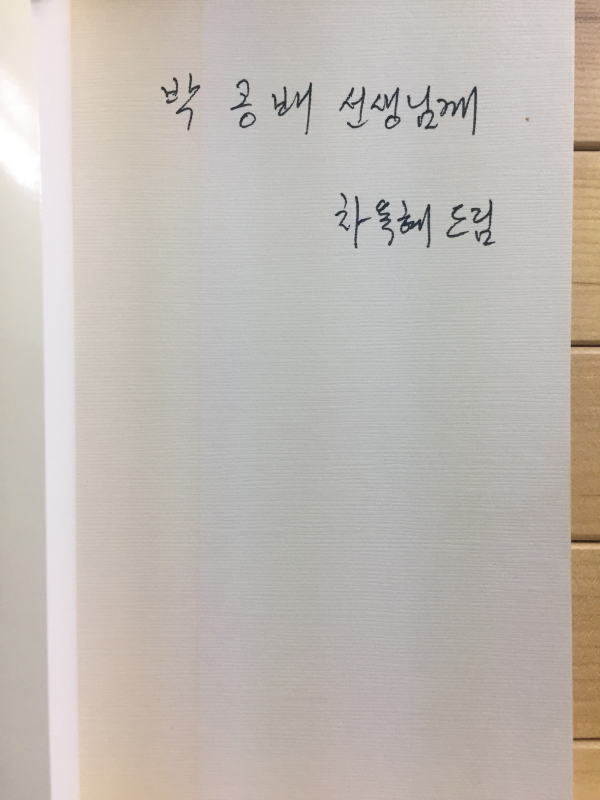 박 공 배 선생님께
차옥혜 드림